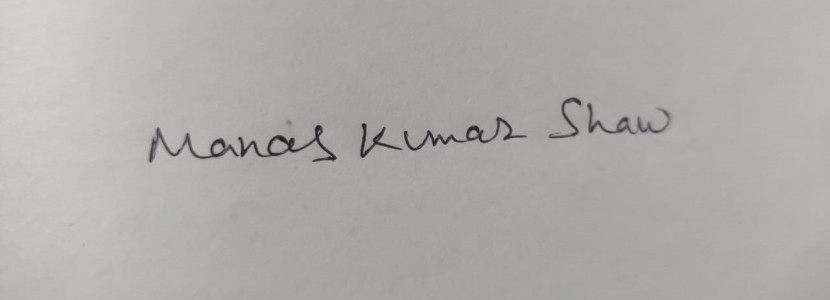 Manas Kumar Shaw